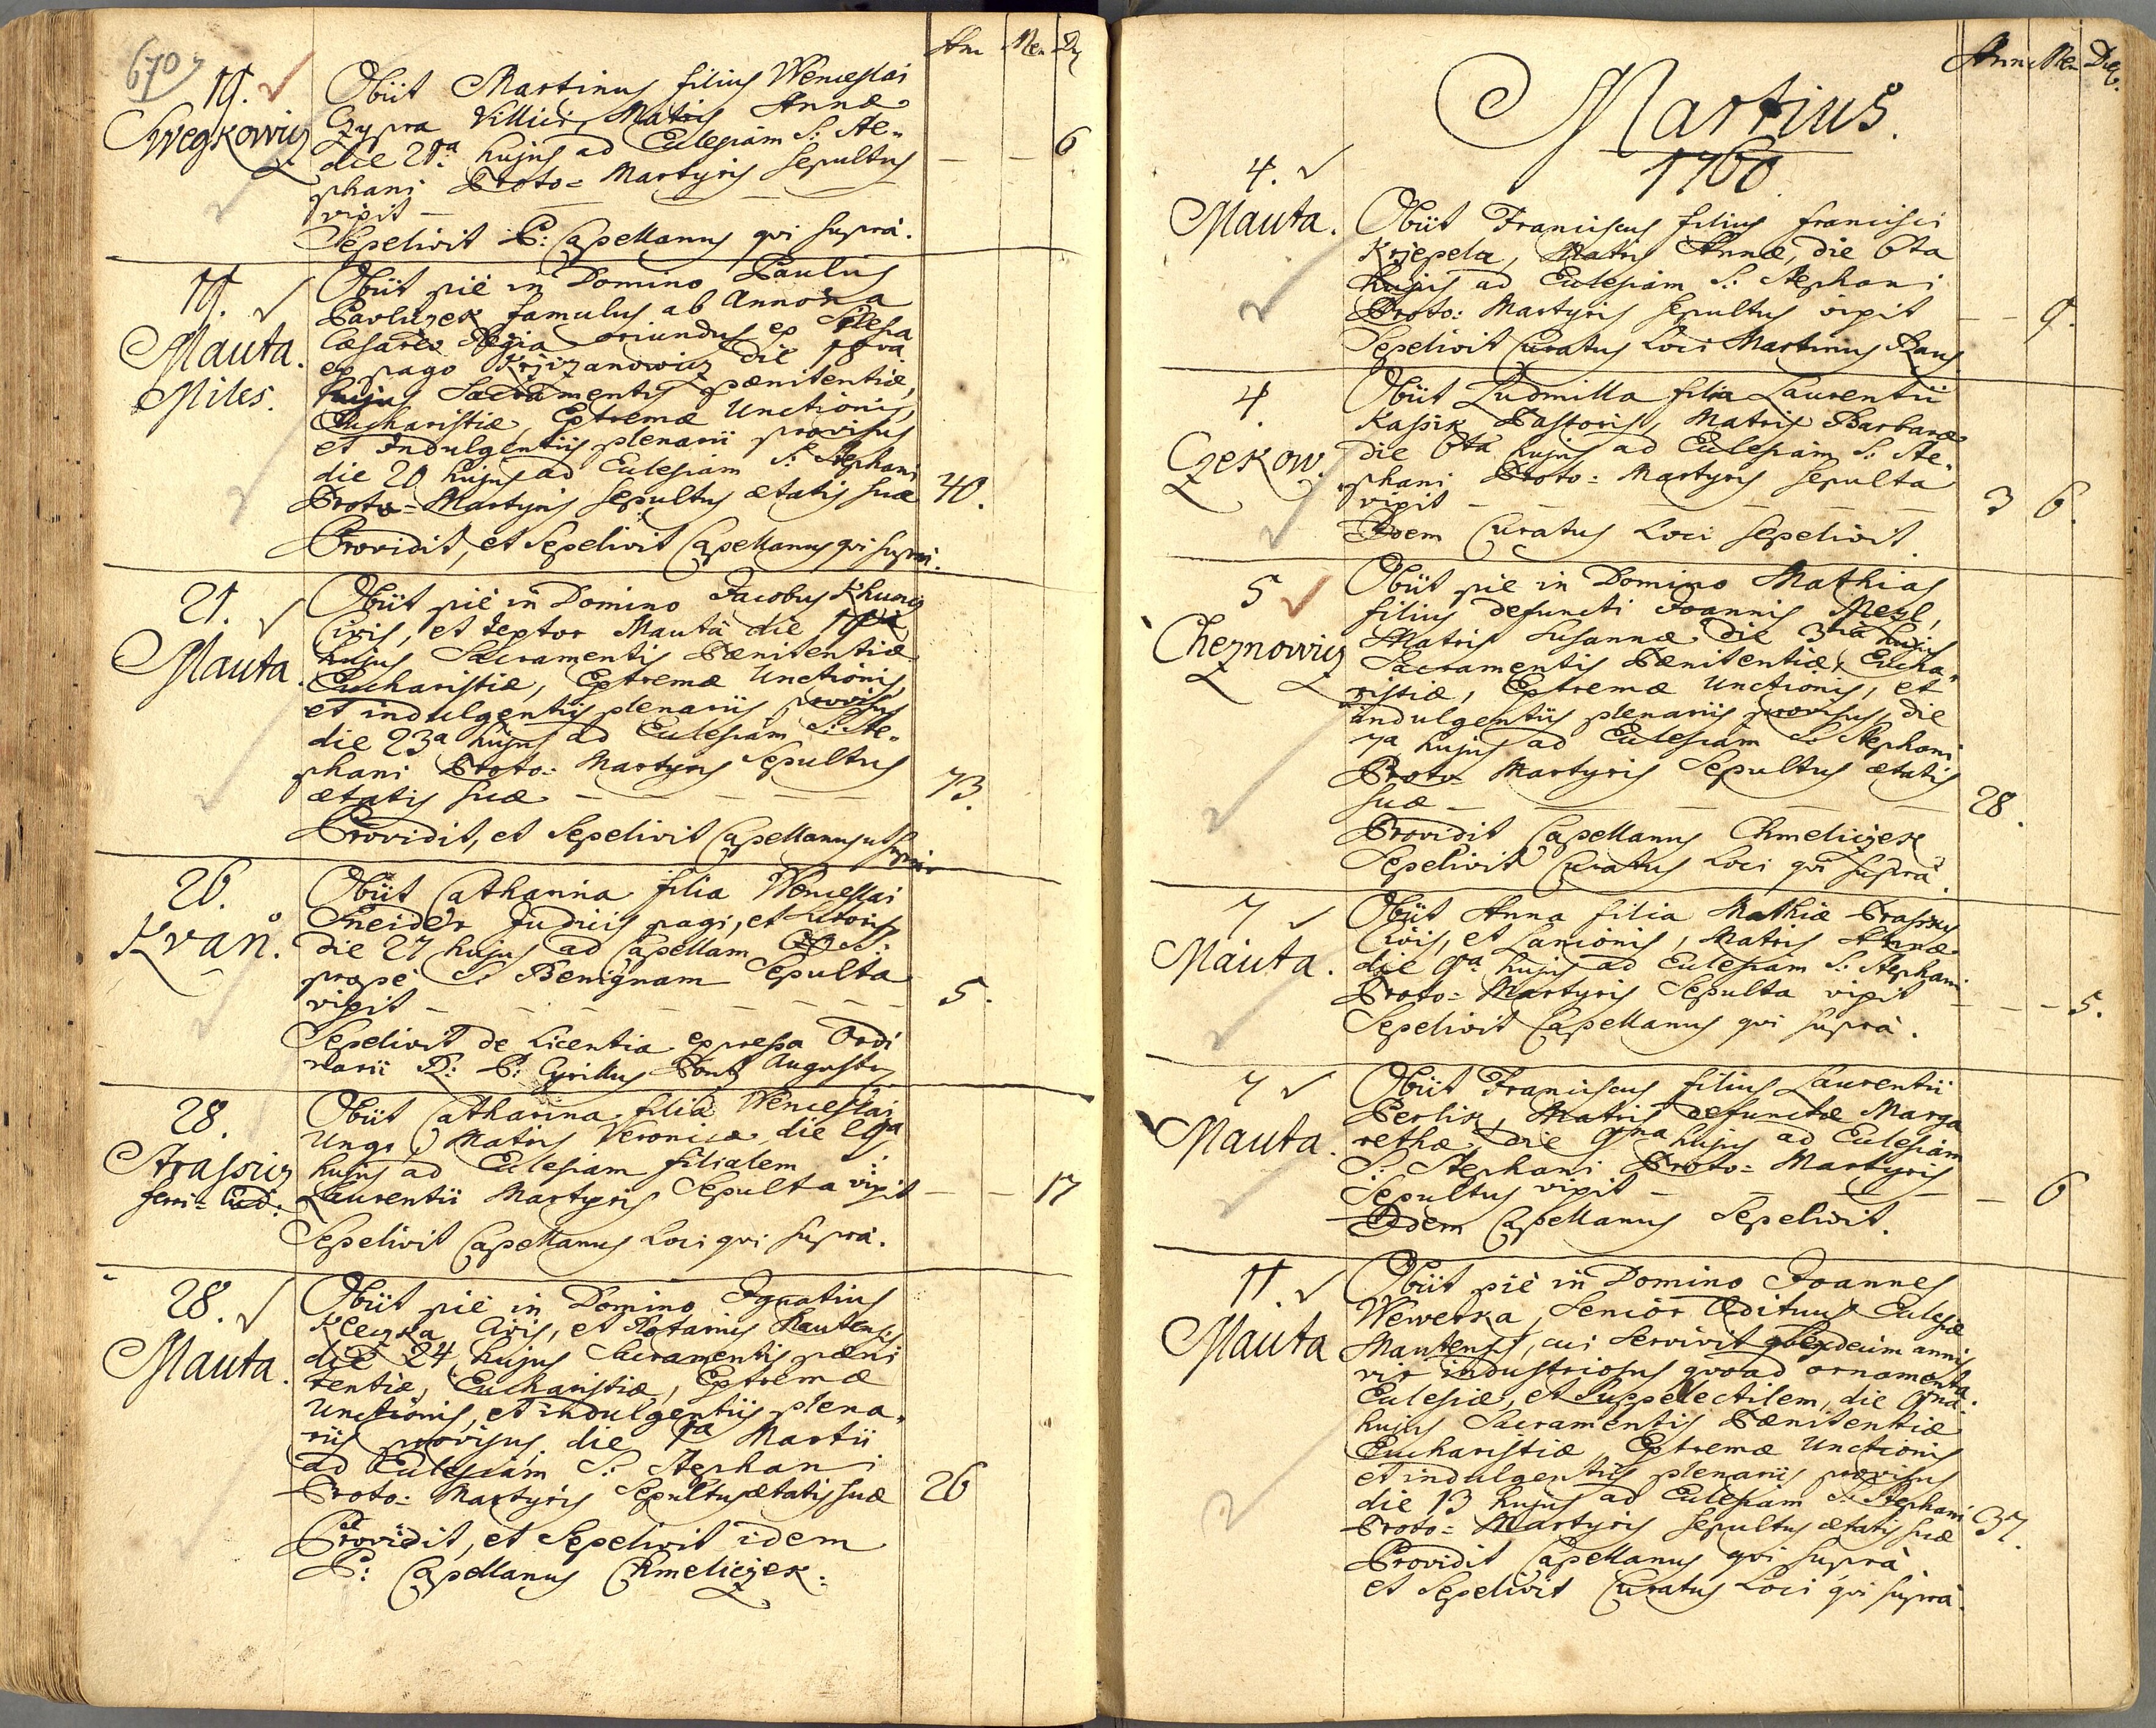 Ann Men Di
670
19.
Swegkowicz
Obiit Martinus filius Wenceslai
Czypra Villici, Matris Annæ
die 21a hujus ad Ecclesiam S: Ste-
phani Proto=Martyris sepultus
vixit — — — 6
Sepelivit P: Capellanus qvi suprà.
19.
Mauta.
Miles.
Obiit piè in Domino Paulus
Pavliczek famulus ab Annona
Cæsareo Regia oriundus ex Silesia
ex pago Krzizanowicz die 18va
hujus Sacramentis pænitentiæ,
Eucharistiæ, Extremæ Unctionis,
et Indulgentiis plenarii provisus
die 20 hujus ad Ecclesiam S: Stephani
Proto=Martyris sepultus ætatis suæ 40.
Providit, et Sepelivit Capellanus qvi suprà.
21.
Mauta.
Obiit piè in Domino Jacobus Khuncz
Civis, et textor Mauta die
hujus Sacramentis Pænitentiæ
Eucharistiæ, Extremæ Unctionis,
et indulgentiis plenariis provisus
die 23a hujus ad Ecclesiam S: Ste-
phani Proto= Martyris Sepultus
ætatis suæ — — — 73.
Providit, et Sepelivit Capellanus ut suprà
26.
Kvaň.
Obiit Catharina filia Wenceslai
Sneider Judicis pagi, et
die 27 hujus ad Capellam
propè S: Benignam Sepulta
vixit — — — 5.
Sepelivit de Licentia expressa Ordi
narii P: P: Cyrillus Augusti
28.
Strassicz
Obiit Catharina filia Wenceslai
Unge, Matris Veronicæ, die 29a
hujus ad Ecclesiam filialem S:
Laurentii Martyris Sepulta vixit — — 17
Sepelivit Capellanus Loci qvi suprà.
28.
Mauta.
Obiit piè in Domino Ignatius
Kleczka Civis, et Notarius Mautensis
die 24 hujus Sacramentis pæni
tentiæ, Eucharistiæ, Extremæ
Unctionis, et indulgentiis plena-
riis provisus die 1a Martii
ad Ecclesiam S: Stephani
Proto= Martyris Sepultus ætatis suæ 26
Providit, et Sepelivit idem
P: Capellanus Chmeliczek.
Ann Men Dies
Martius.
1760
4.
Mauta.
Obiit Franciscus filius francisci
Krzepela, Matris Annæ, die 6ta
hujus ad Ecclesiam S: Stephani
Proto: Martyris sepultus vixit — — 9.
Sepelivit Curatus Loci Martinus
4.
Czekow.
Obiit Ludmilla filia Laurentii
Kassik Pastoris, Matris Barbaræ
die 6ta hujus ad Ecclesiam S: Ste-
phani Proto= Martyris sepulta
vixit — — — 3 6.
Idem Curatus Loci sepelivit.
5
Cheznowicz
Obiit piè in Domino Mathias
filius defuncti Joannis
Matris Susannæ die 3tia hujus
Sacramentis Pænitentiæ, Eucha-
ristiæ, Extremæ Unctionis, et
indulgentiis plenariis provisus, die
7a hujus ad Ecclesiam S: Stephani
Proto= Martyris Sepultus ætatis
suæ — — — 28.
Providit Capellanus Chmeliczek
Sepelivit Curatus Loci qvi suprà.
7
Mauta.
Obiit Anna filia Mathiæ
Civis, et Lanionis, Matris Annæ
die 9a hujus ad Ecclesiam S: Stephani
Proto= Martyris Sepulta vixit — — — 5.
Sepelivit Capellanus qvi suprà.
7
Mauta.
Obiit Franciscus filius Laurentii
Perlik, Matris defunctæ Marga
rethæ die 9na hujus ad Ecclesiam
S: Stephani Proto= Martyris
Sepultus vixit — — — 6
Idem Capellanus Sepelivit.
11.
Mauta
Obiit piè in Domino Joannes
Wewerka, Senior Ædituus Ecclesiæ
Mautensis, cui servivit annis
vir industriosus qvoad ornamenta
Ecclesiæ, et Suppellectilem, die 9na
hujus Sacramentis Pænitentiæ
Eucharistiæ, Extremæ Unctionis
et indulgentiis plenarii provisus
die 13 hujus ad Ecclesiam S: Stephani
Proto= Martyris sepultus ætatis suæ 37.
Providit Capellanus qvi suprà
et Sepelivit Curatus Loci qvi suprà.